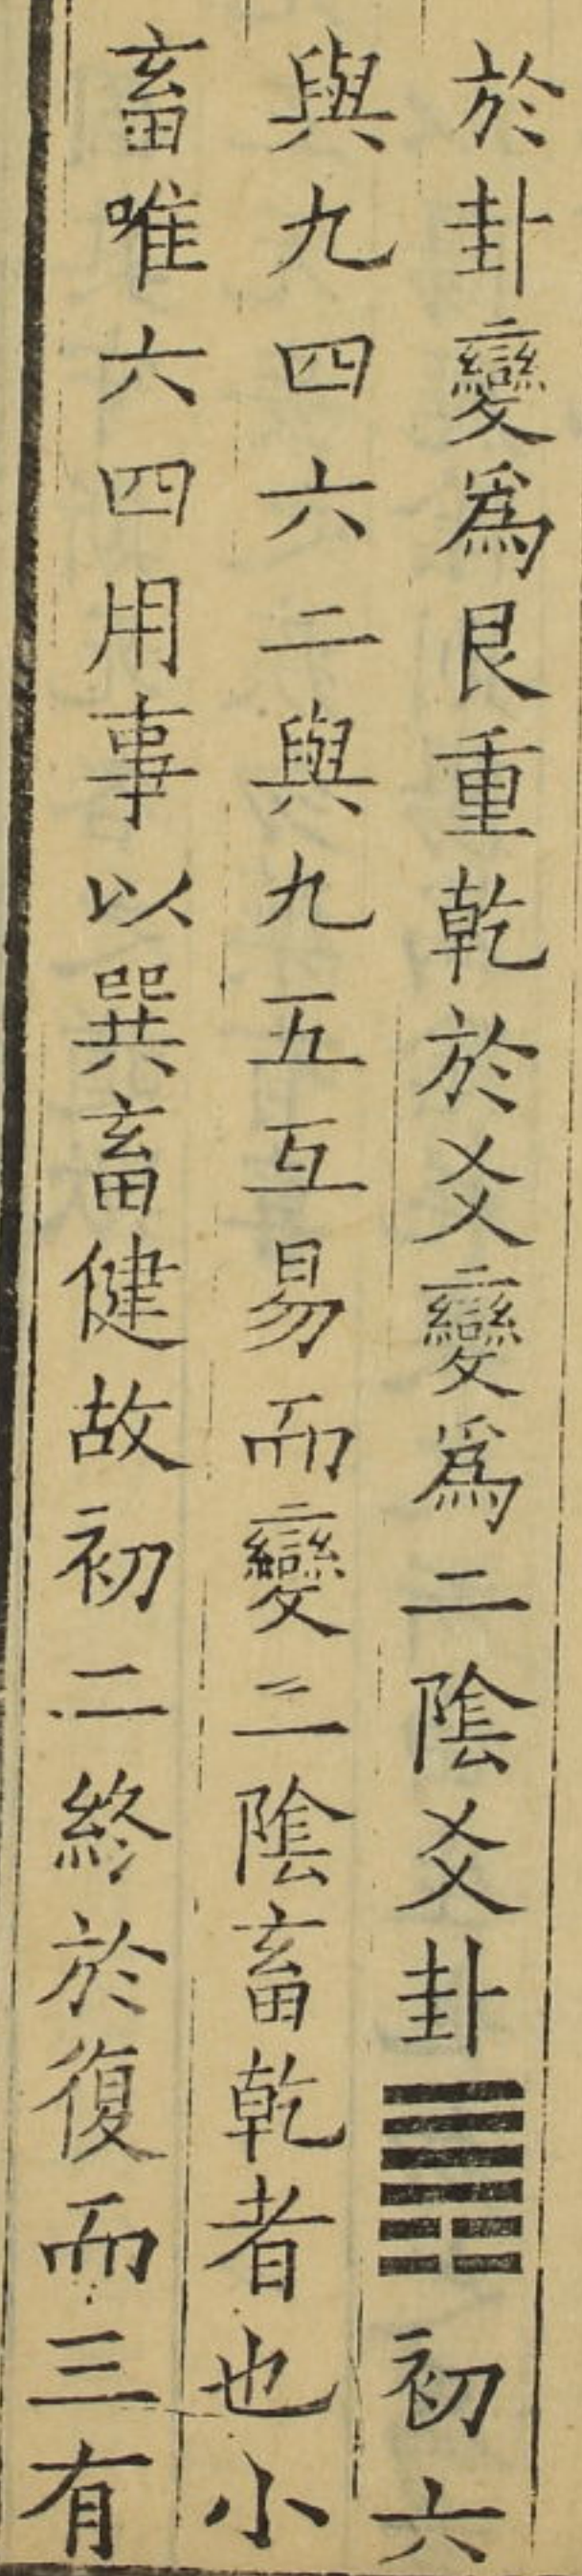 於卦變爲艮重乾於爻變爲二陰爻卦䷠初六
與九四六二與九五互易而變二陰畜乾者也小
畜唯六四用事以巽畜健故初二終於復而三有